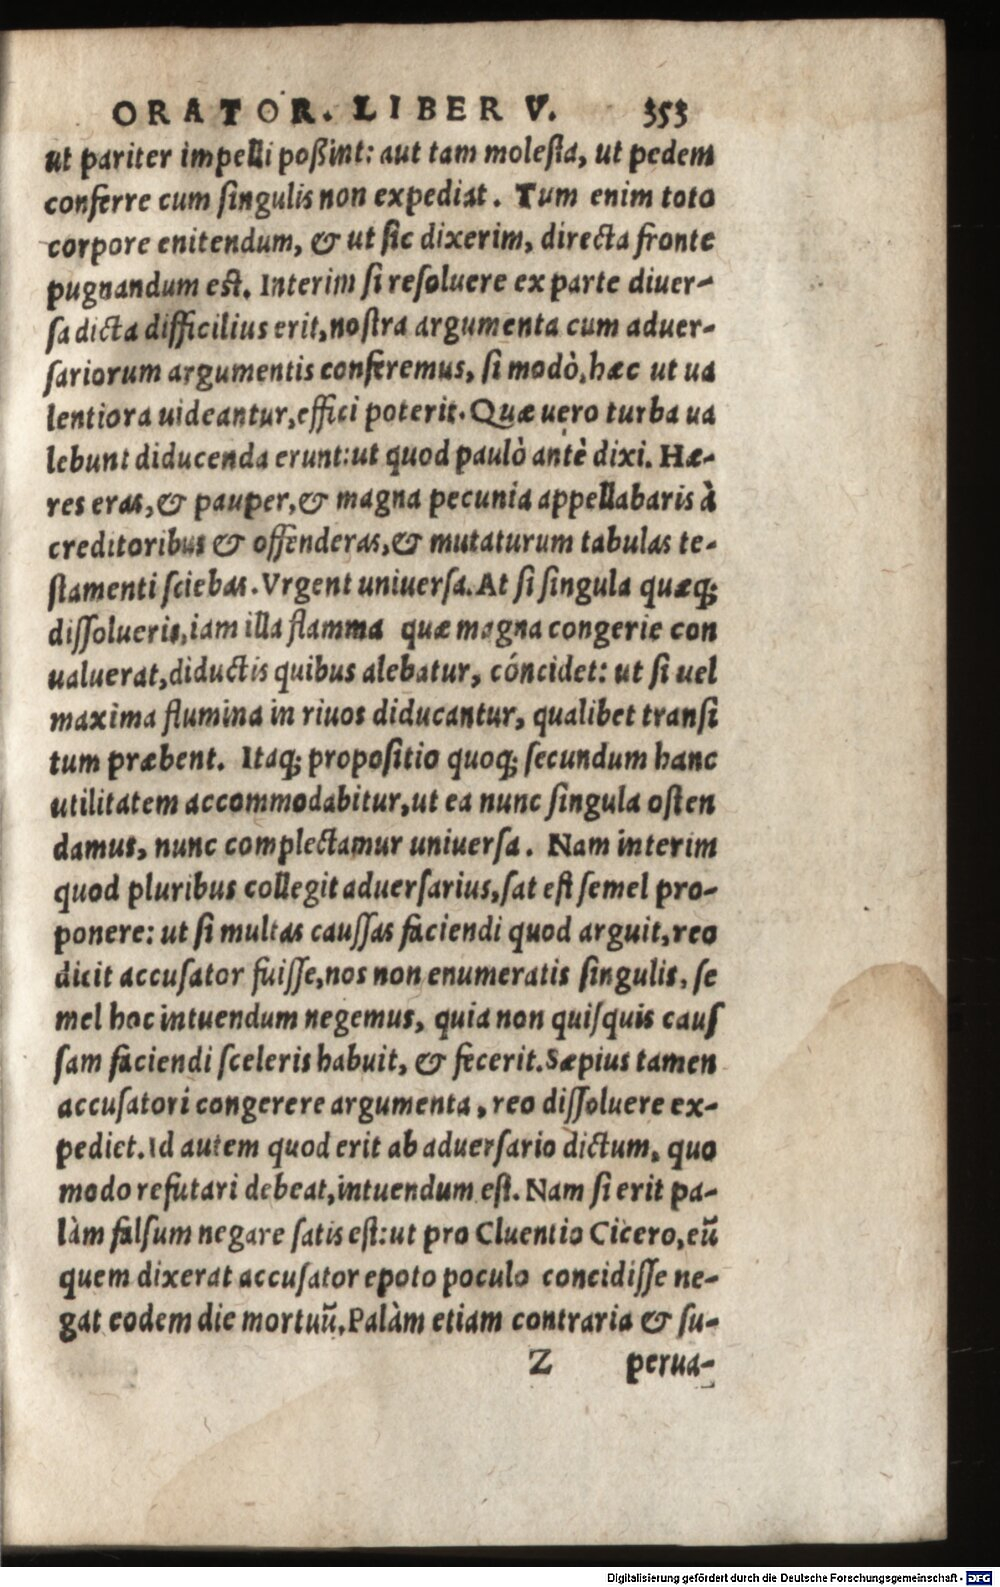 ORATOR. LIBER V. 353
ut pariter impelli poßint: aut tam molesta, ut pedem
conferre cum singulis non expediat. Tum enim toto
corpore enitendum, & ut sic dixerim, directa fronte
pugnandum est. Interim si resoluere ex parte diuer-
sa dicta difficilius erit, nostra argumenta cum aduer-
sariorum argumentis conferemus, si modò, hæc ut ua
lentiora uideantur, effici poterit. Quæ uero turba ua
lebunt diducenda erunt: ut quod paulò antè dixi. Hæ-
res eras, & pauper, & magna pecunia appellabaris à
creditoribus & offenderas, & mutaturum tabulas te-
stamenti sciebas. Vrgent uniuersa. At si singula quæq;
dissolueris, iam illa flamma quæ magna congerie con
ualuerat, diductis quibus alebatur, cóncidet: ut si uel
maxima flumina in riuos diducantur, qualibet transi
tum præbent. Itaq; propositio quoq; secundum hanc
utilitatem accommodabitur, ut ea nunc singula osten
damus, nunc complectamur uniuersa. Nam interim
quod pluribus collegit aduersarius, sat est semel pro-
ponere: ut si multas caussas faciendi quod arguit, reo
dicit accusator fuisse, nos non enumeratis singulis, se
mel hoc intuendum negemus, quia non quisquis caus
sam faciendi sceleris habuit, & fecerit. Sæpius tamen
accusatori congerere argumenta, reo dissoluere ex-
pediet. Id autem quod erit ab aduersario dictum, quo
modo refutari debeat, intuendum est. Nam si erit pa-
làm falsum negare satis est: ut pro Cluentio Cicero, eũ
quem dixerat accusator epoto poculo concidisse ne-
gat eodem die mortuũ. Palàm etiam contraria & su-
Z perua-
Digitalisierung gefördert durch die Deutsche Forschungsgemeinschaft - DFG